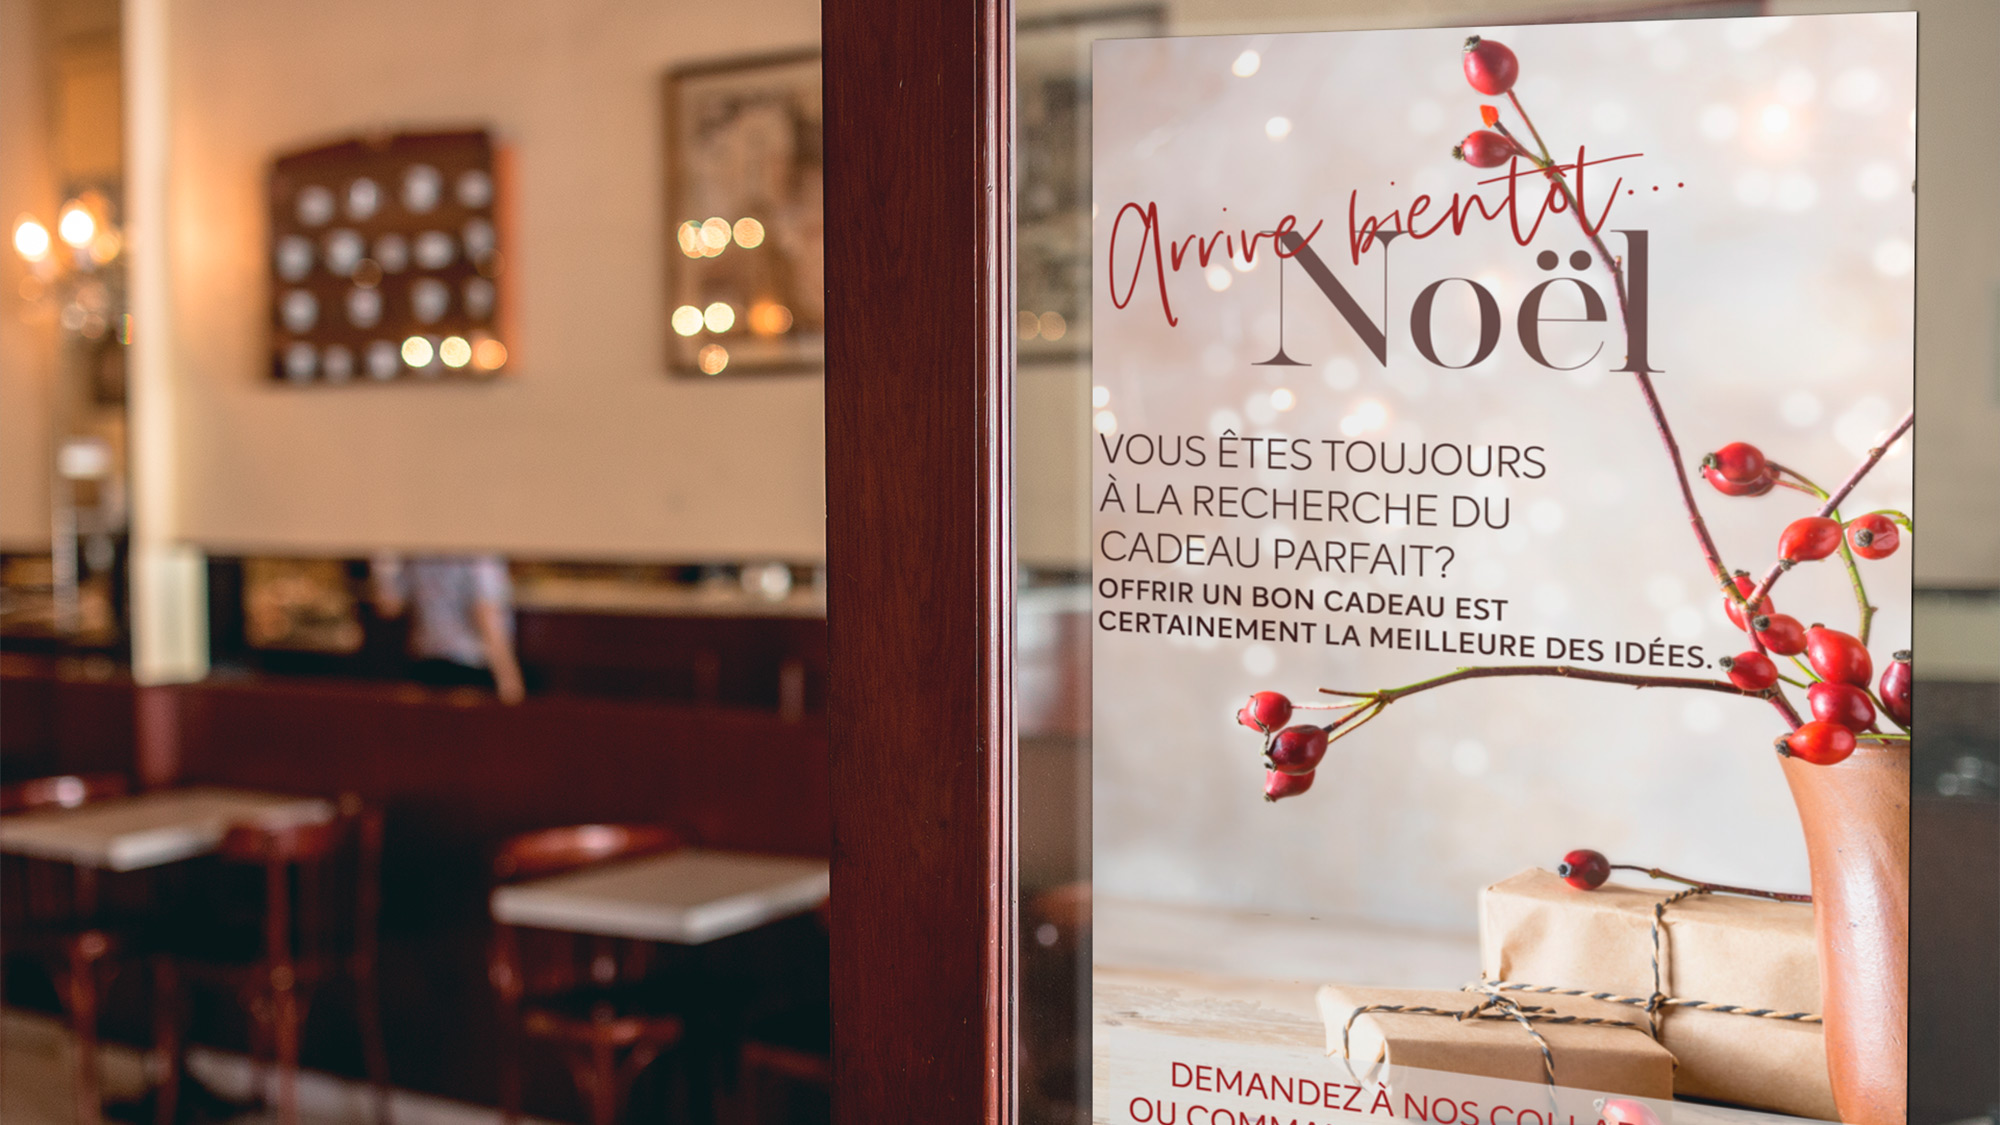 Arrive bientot...
Noël
VOUS ÊTES TOUJOURS
À LA RECHERCHE DU
CADEAU PARFAIT?
OFFRIR UN BON CADEAU EST
CERTAINEMENT LA MEILLEURE DES IDÉES.
DEMANDEZ À NOS
OU